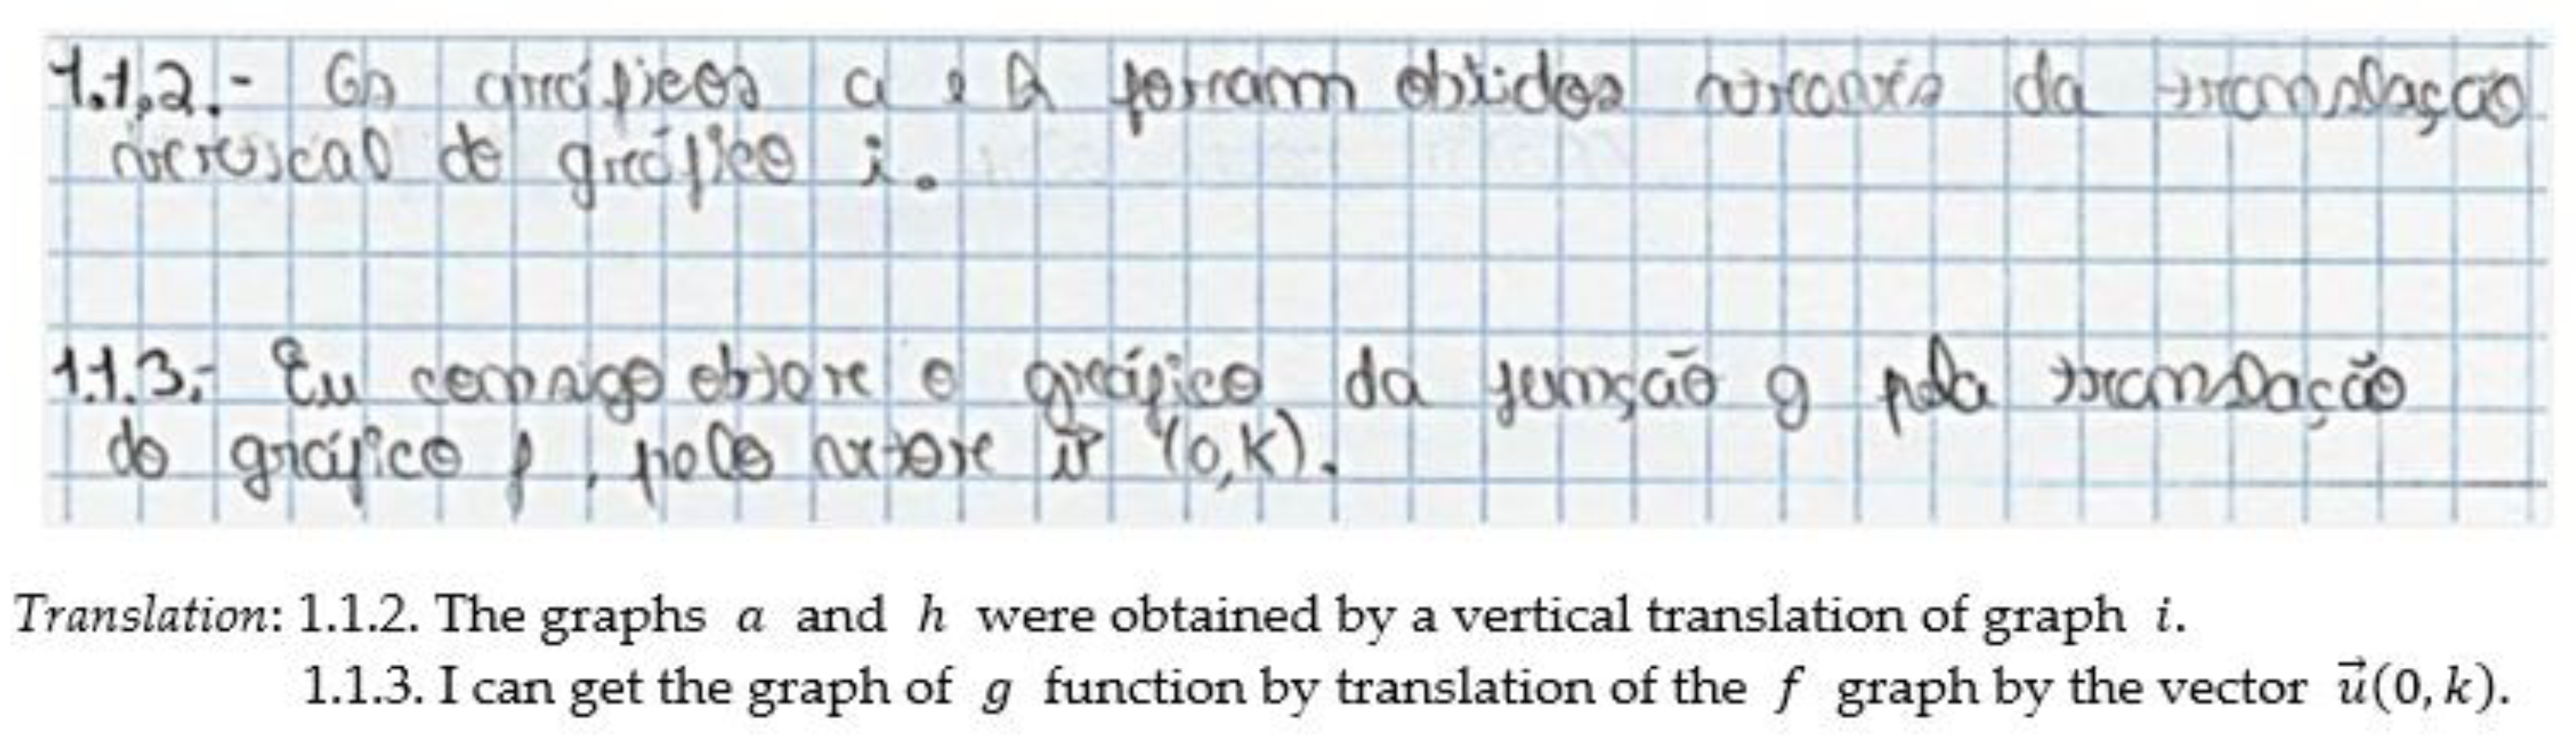 1.1.2.- Os gráficos a e h forram obtidos através da translação
vertical do gráfico i.
1.1.3.- Eu consigo obter o gráfico da função g pela translação
do gráfico f, pelo vetor (0,K).
Translation: 1.1.2. The graphs a and h were obtained by a vertical translation of graph i.
1.1.3. I can get the graph of g function by translation of the f graph by the vector u⃗(0, k).